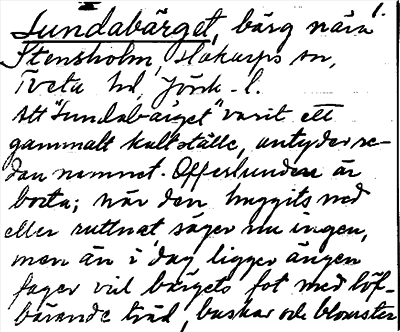 1.
Lundabärget, bärg nära
Stensholm, Hakarps sn,
Tveta hd, Jönk. l.
Att "Lundabärget" varit ett
gammalt kultställe, antyder re-
dan namnet. Offerlunden är
borta; när den huggits ned
eller ruttnat, säger nu ingen,
men än i dag ligger ängen
fager vid bärgets fot med löf-
bärande träd, buskar och blomster